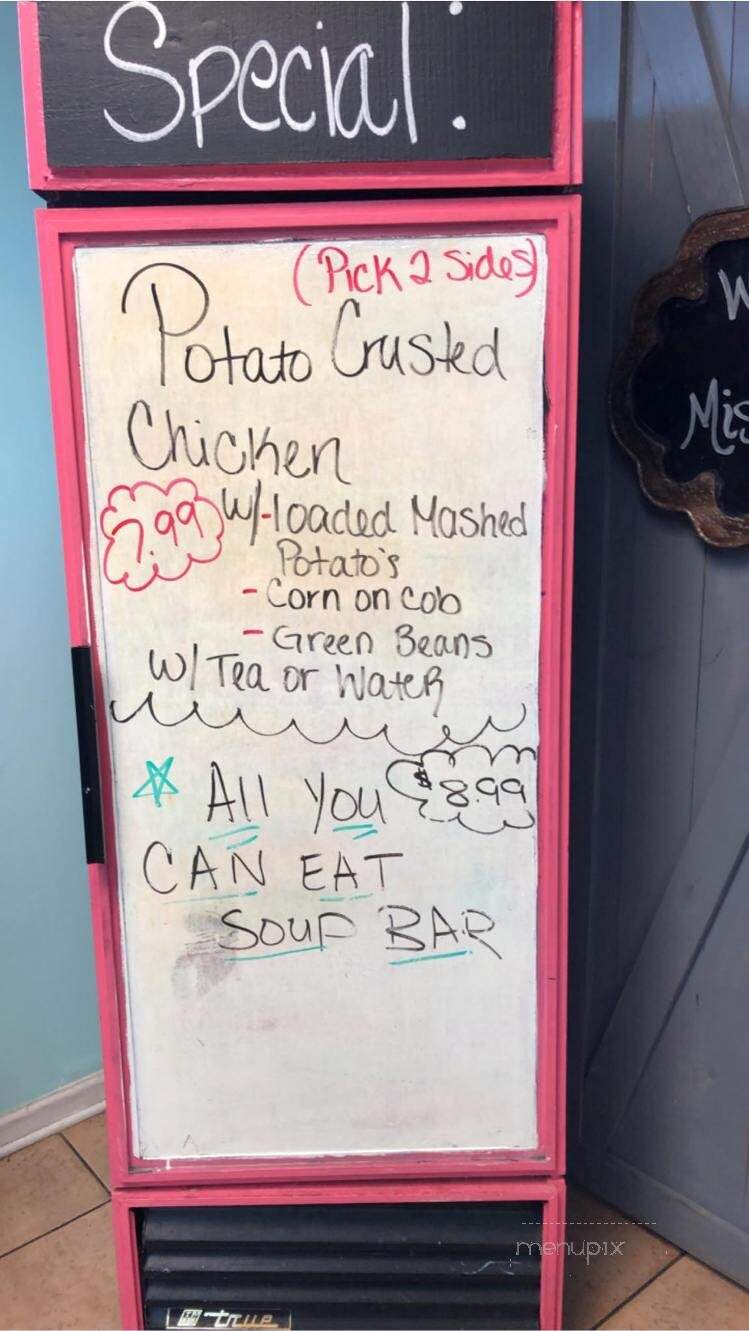 Special:
(Pick 2 Sides)
Potato Crusted
Chicken
7.99
w/-loaded Mashed
Potato's
- Corn on cob
- Green Beans
w/ Tea or Water
All You
$8.99
CAN EAT
SOUP BAR
W
Mis
menupix
true